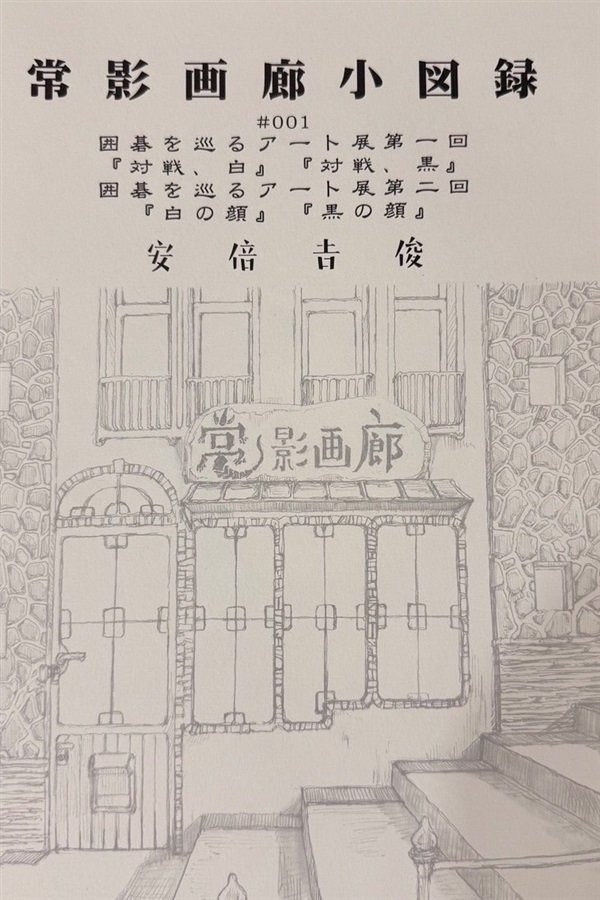 常影画廊小図録
#001
囲碁を巡るアート展第一回
『対戦、白』 『対戦、黒』
囲碁を巡るアート展第二回
『白の顔』 『黒の顔』
安倍吉俊
常影画廊